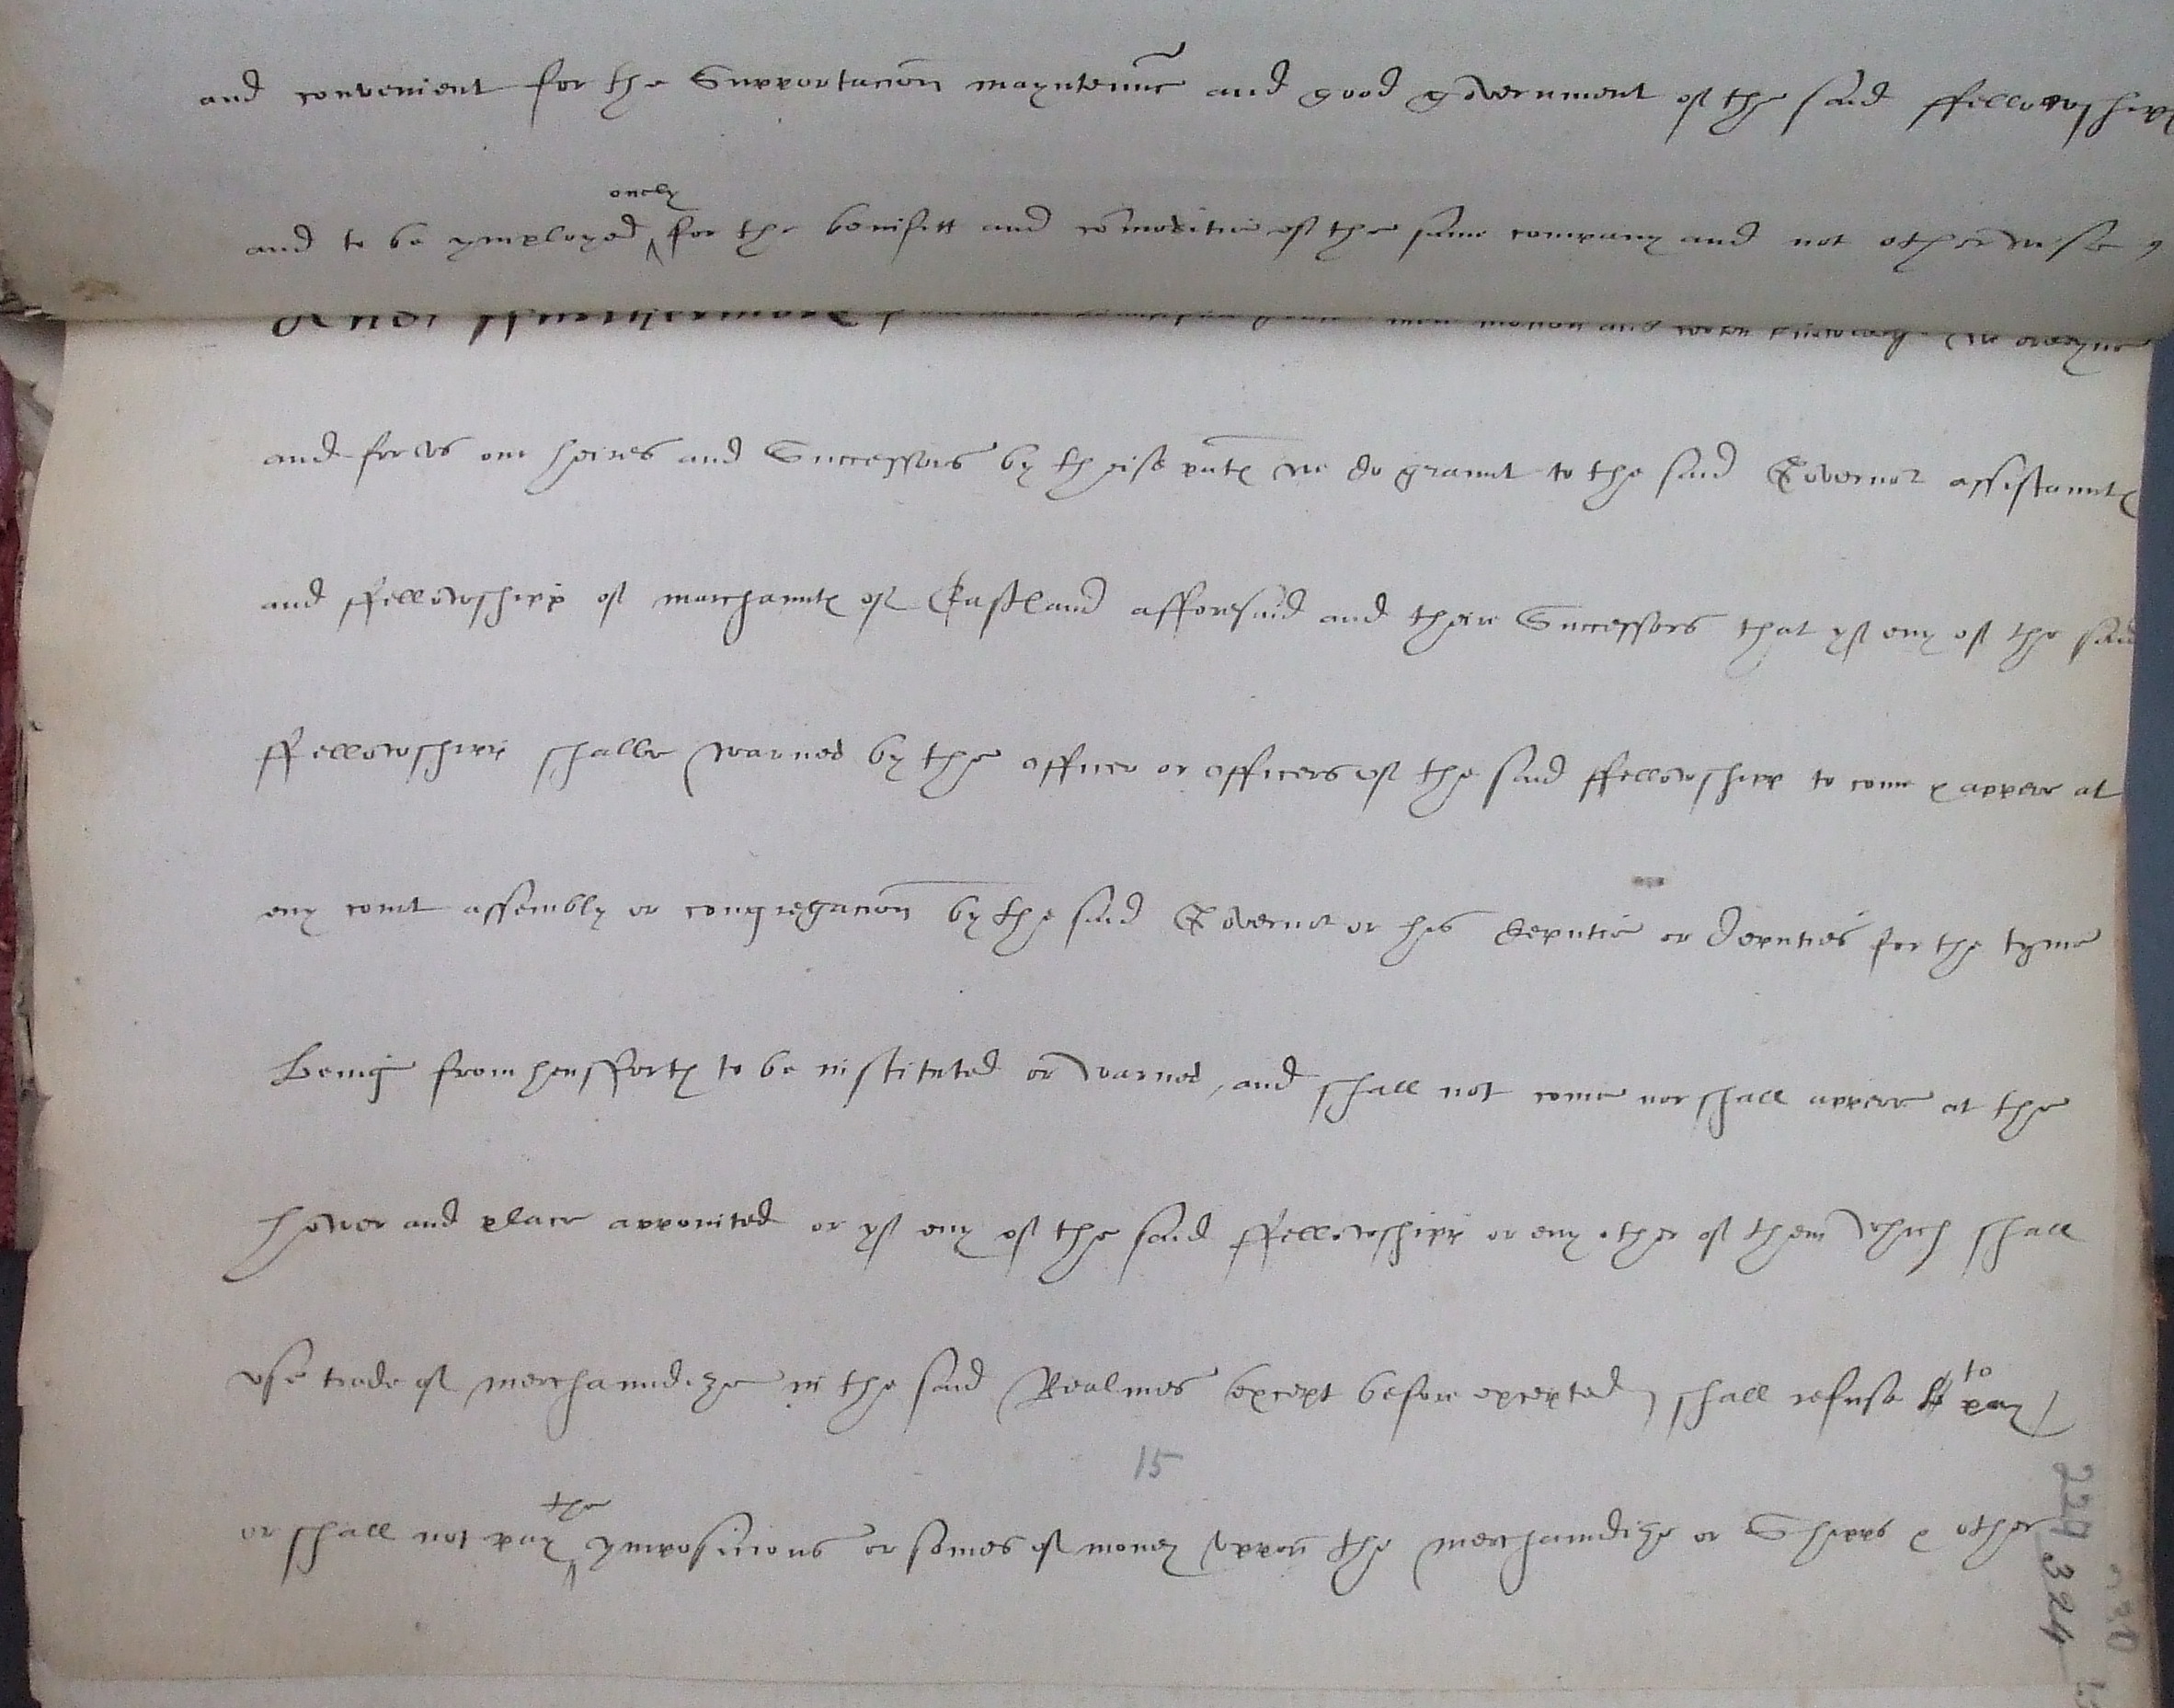 and convenient for the Supportacion mayntennce and good government of the said ffellowshipp
onely
and to be ymployed for the benifitt and comoditie of the same company and not otherwise,
And ffurthermore we ordeyne
and for vs our heires and Successors by theise pntes we do graunt to the said Governor assistauntes
and ffellowshipp of marchauntes of Eastland afforesaid and their Successors that yf eny of the said
ffellowshipp shalbe warned by the officer or officers of the said ffellowshipp to come & appere at
eny court assembly or congregacion by the said Governor or his deputie or deputies for the tyme
being from hensfforth to be instituted or warned, and shall not come nor shall appere at the
hower and place appointed or yf eny of the said ffellowshipp or eny other of them which shall
vse trade of merchaundize in the said Realmes except before excepted, shall refuse to pay
15
the
or shall not pay ymposicions or somes of money vppon the merchaundize or Shipps & other
229 324